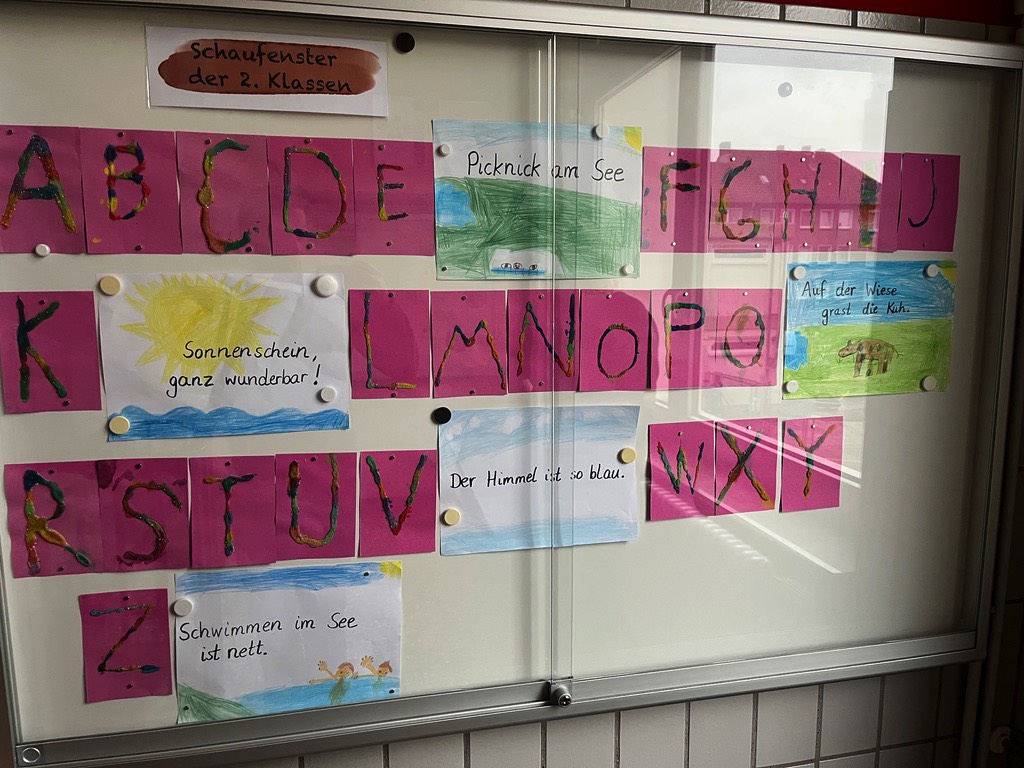 Schaufenster
der 2. Klassen
A B C D E
Picknick am See
F G H I J
K
Sonnenschein,
ganz wunderbar!
L M N O P Q
Auf der Wiese
grast die Kuh.
R S T U V
Der Himmel ist so blau.
W X Y
Z
Schwimmen im See
ist nett.